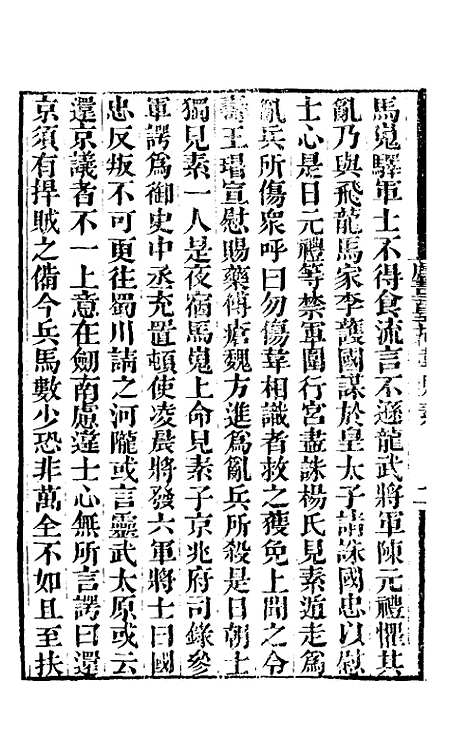 馬嵬驛軍士不得食流言不遜龍武將軍陳元禮懼其
亂乃與飛龍馬家李護國謀於皇太子請誅國忠以慰
士心是日元禮等禁軍圍行宮盡誅楊氏見素遁走爲
亂兵所傷衆呼曰勿傷韋相識者救之獲免上聞之令
壽王瑁宣慰賜藥傅瘡魏方進爲亂兵所殺是日朝士
獨見素一人是夜宿馬嵬上命見素子京兆府司錄參
軍諤爲御史中丞充置頓使凌晨將發六軍將士曰國
忠反叛不可更往蜀川請之河隴或言靈武太原或云
還京議者不一上意在劒南慮違士心無所言諤曰還
京須有捍賊之備今兵馬數少恐非萬全不如且至扶